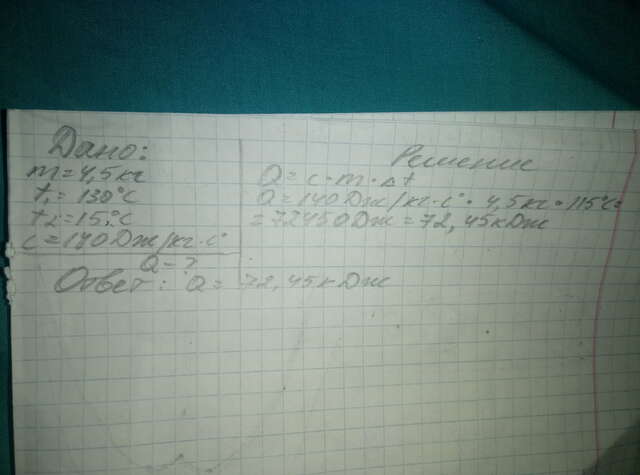 Дано:
m = 4,5 кг
t₁ = 130°C
t₂ = 15°C
c = 140 Дж/кг·C°
Q = ?
Решение
Q = c·m·Δt
Q = 140 Дж/кг·C° · 4,5 кг · 115°C =
= 72450 Дж = 72,45 кДж
Ответ: Q = 72,45 кДж